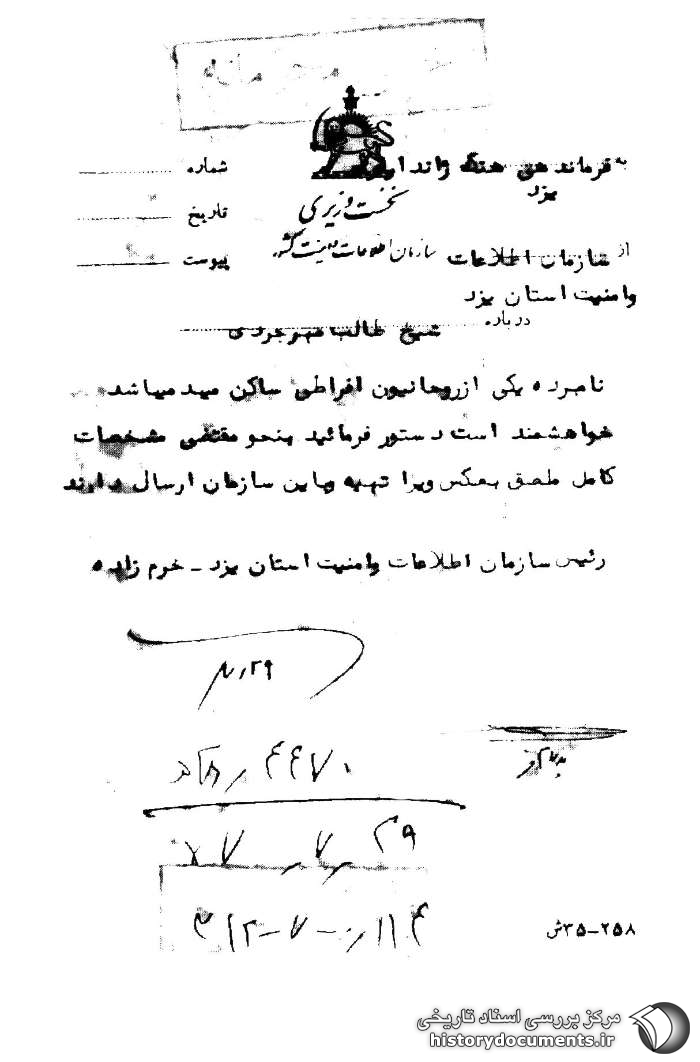 به فرماندهی هنگ ژاندارمری
یزد
شماره
نخست وزیری
تاریخ
سازمان اطلاعات و امنیت کشور
از سازمان اطلاعات
پیوست
وامنیت استان یزد
درباره شیخ طالب مهرجردی
نامبرده یکی ازروحانیون افراطی ساکن میبد میباشد
خواهشمند است دستور فرمائید بنحو مقتضی مشخصات
کامل ملصق بعکس ویرا تهیه وباین سازمان ارسال دارند
رئیس سازمان اطلاعات وامنیت استان یزد - خرم زاده
۴۴۷۰
۲۹ ر ۷ ر
۳۱۲-۷-
۲۵۸-۳۵ش
مرکز بررسی اسناد تاریخی
historydocuments.ir